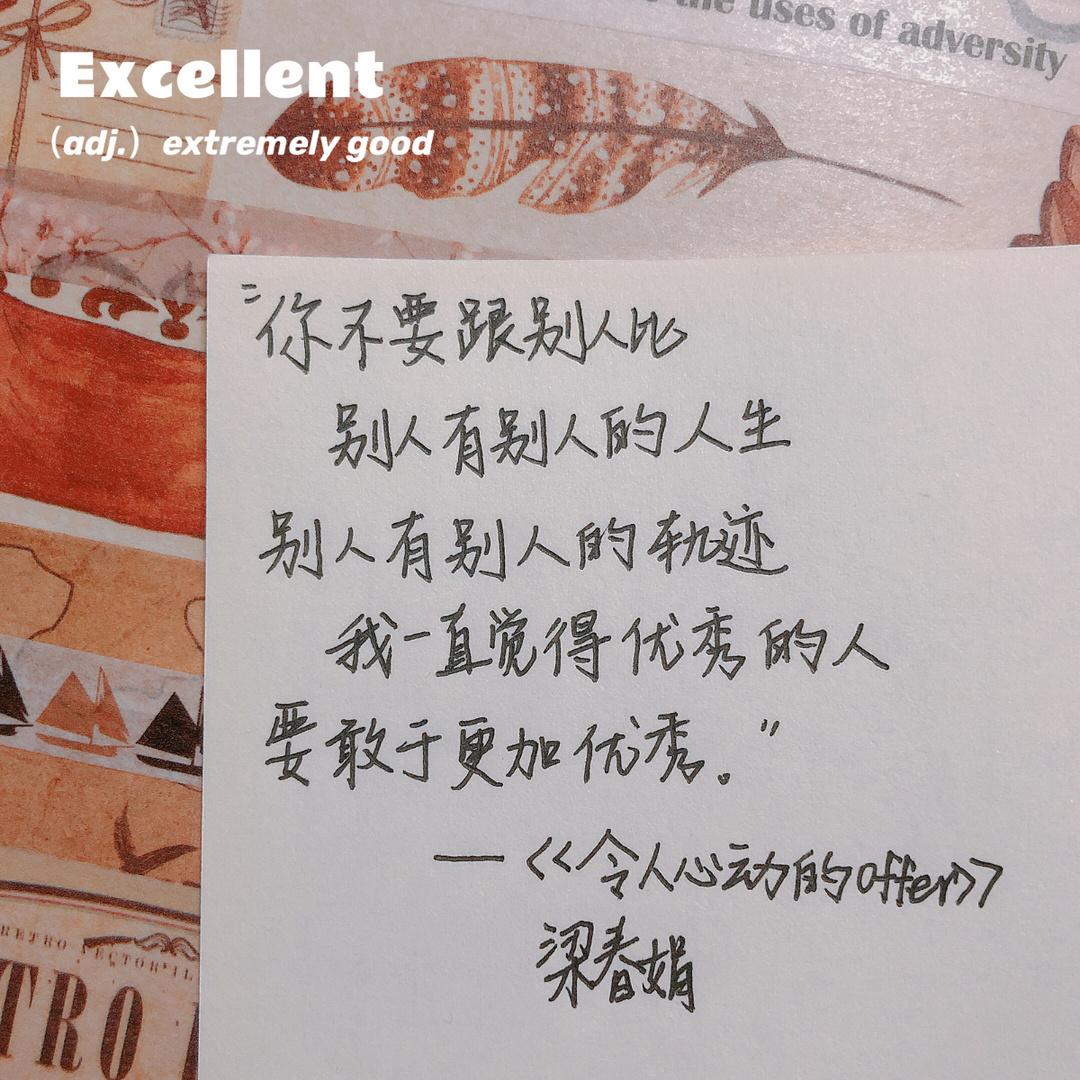 the uses of adversity
Excellent
(adj.) extremely good
“你不要跟别人比
别人有别人的人生
别人有别人的轨迹
我一直觉得优秀的人
要敢于更加优秀。”
—<<令人心动的offer>>
梁春娟
RETRO
TRO